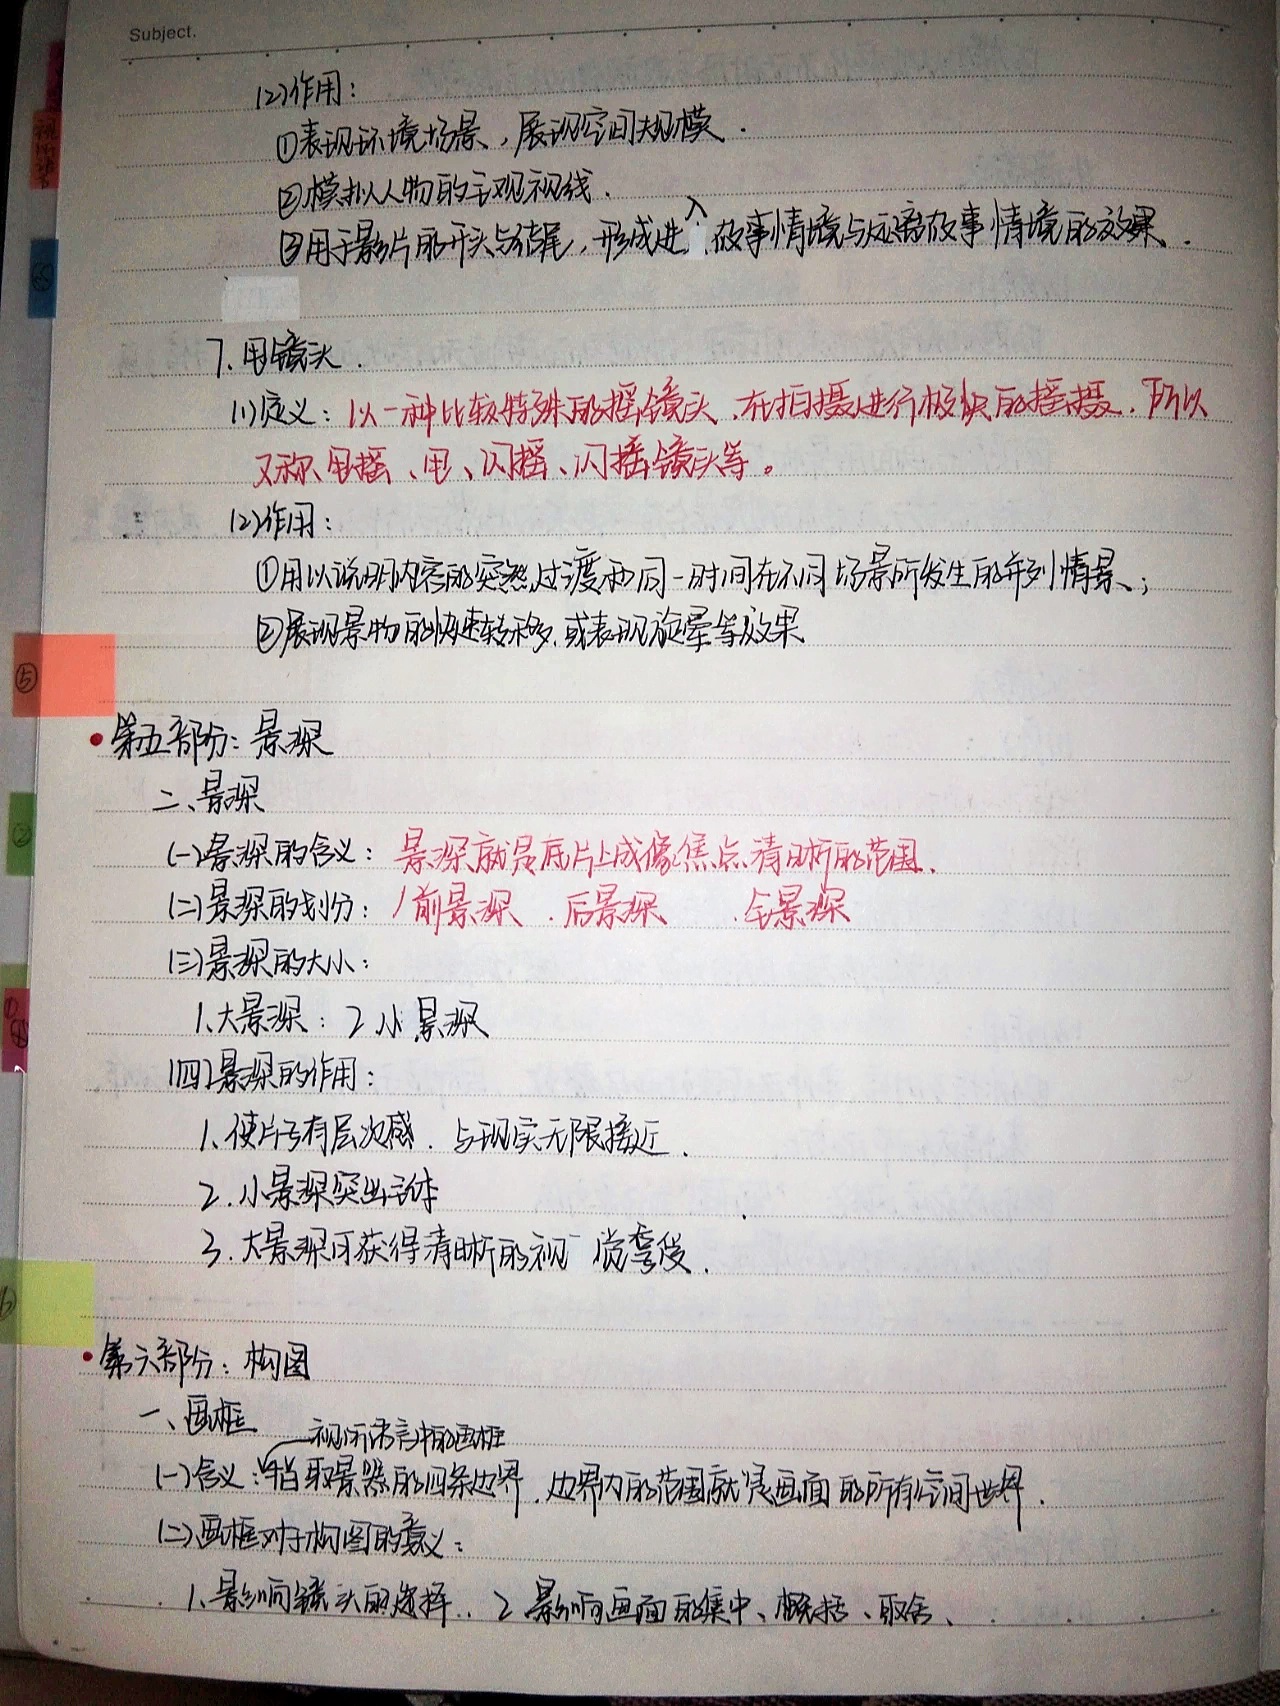 Subject.
(2)作用:
①表现环境场景,展现空间规模.
②模拟人物的主观视线.
③用于影片的开头与结尾,形成进入故事情境与远离故事情境的效果.
7.甩镜头.
(1)定义:以一种比较特殊的摇镜头.在拍摄进行极快的摇摄.所以
又称甩摇、甩、闪摇、闪摇镜头等。
(2)作用:
①用以说明内容的突然过渡和同一时间在不同场景所发生的并列情景;
②展现景物的快速转移.或表现旋晕等效果
⑤
第五部分:景深
二、景深
(一)景深的含义:景深就是底片上成像焦点清晰的范围.
(二)景深的划分:前景深.后景深.全景深
(三)景深的大小:
1、大景深:2小景深
(四)景深的作用:
1、使片子有层次感.与现实无限接近.
2.小景深突出主体
3.大景深可获得清晰的视觉享受.
第六部分:构图
一、画框
视听语言中的画框
(一)含义:指取景器的四条边界.边界内的范围就是画面的所有空间世界.
(二)画框对于构图的意义:
1、影响镜头的选择..2影响画面的集中、概括、取舍、